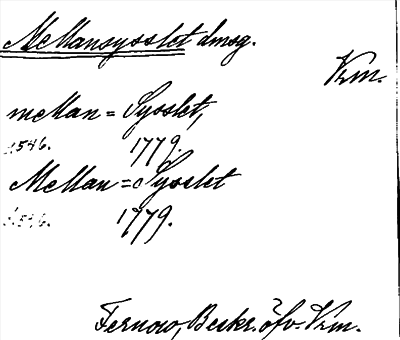 Mellansysslet dmsg.
Vrm.
mellan = Sysslet,
s. 546. 1779.
Mellan = Sysslet
s. 546. 1779.
Fernow, Beskr. öfv. Vrm.